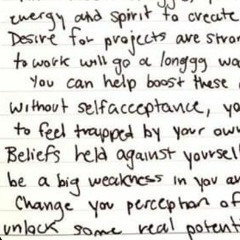 energy and spirit to create
Desire for projects are stron
to work will go a longgg wa
You can help boost these
without selfacceptance, yo
to feel trapped by your own
Beliefs held against yoursel
be a big weakness in you an
Change you perception of
unlock some real potent